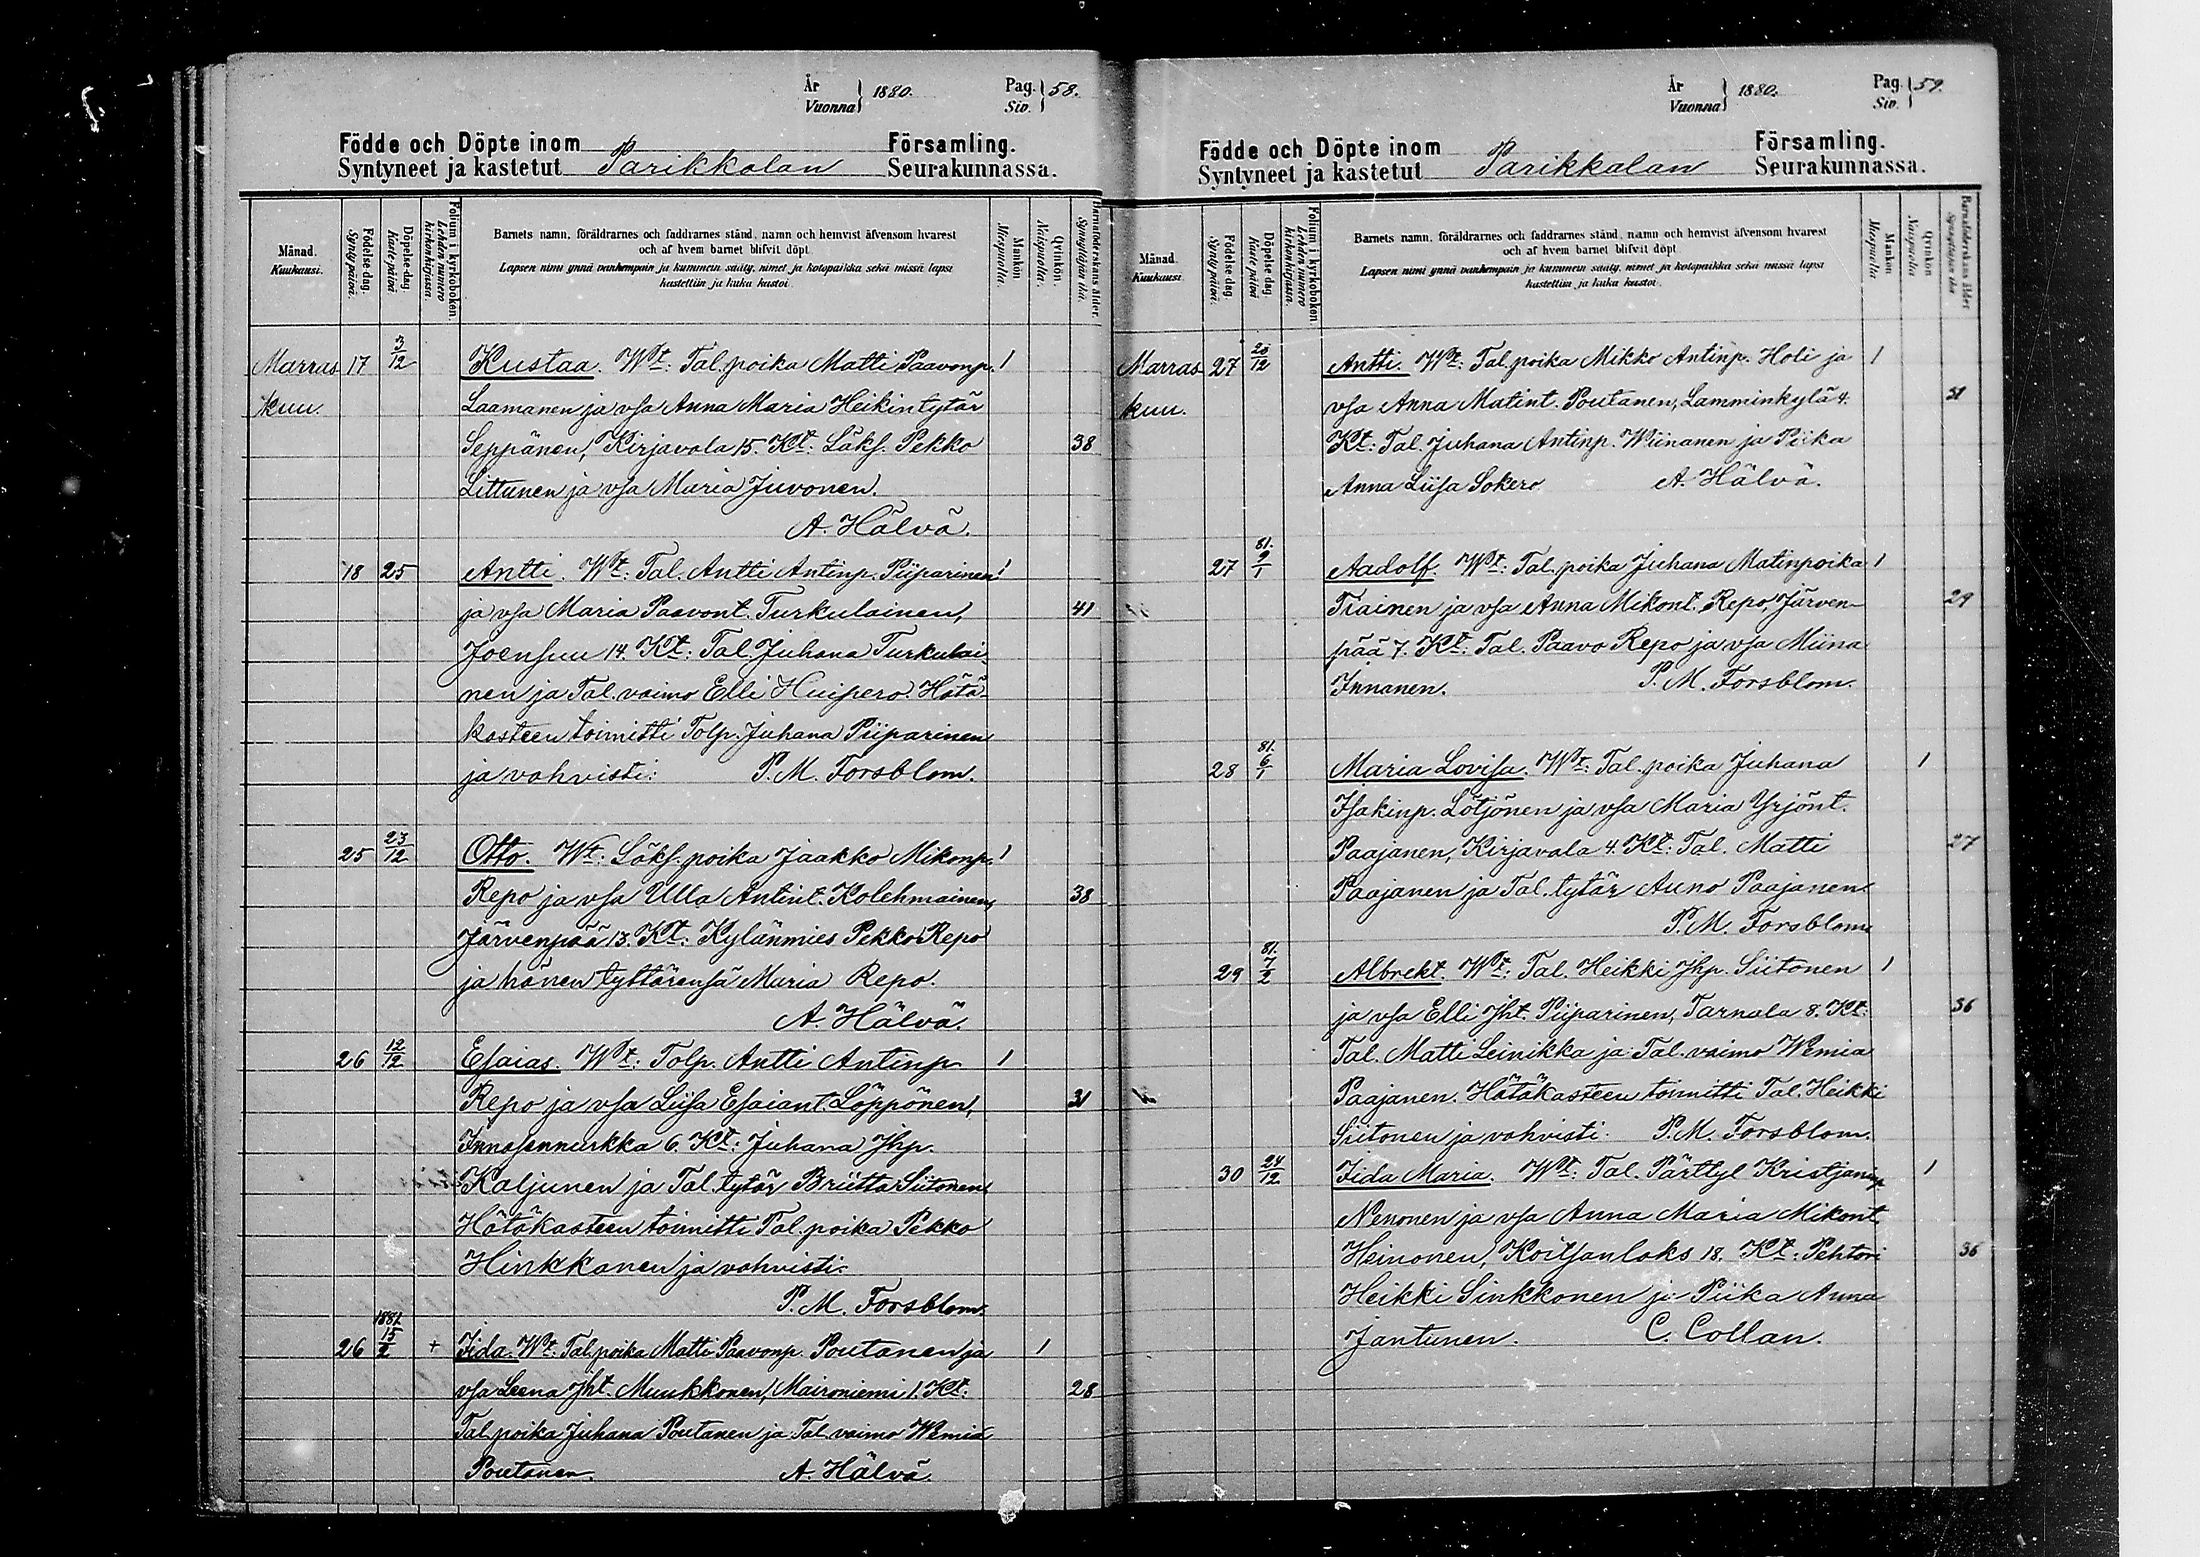 År
Vuonna 1880. Pag. Siv. 58.
Födde och Döpte inom Församling.
Syntyneet ja kastetut Parikkalan Seurakunnassa.
Månad. Kuukausi.
Födelse-dag. Syntypäivä.
Döpelse-dag. Kastepäivä
Folium i kyrkoboken. Lehden numero kirkonkirjassa.
Barnets namn, föräldrarnes och faddrarnes stånd, namn och hemvist äfvensom hvarest
och af hvem barnet blifvit döpt.
Lapsen nimi ynnä vanhempain ja kummein sääty, nimet ja kotopaikka sekä missä lapsi
kastettiin ja kuka kastoi.
Mankön. Miespuolia.
Qvinkön. Naispuolia.
Barnaföderskans ålder. Synnyttäjän ikä.
Marras 17 3/12 Kustaa. Wt: Tal. poika Matti Paavonp. 1
kuu. Laamanen ja vsa Anna Maria Heikintytär
Seppänen, Kirjavala 15. Kt: Läks. Pekko 38
Littunen ja vsa Maria Juvonen.
A. Hälvä.
18 25 Antti. Wt: Tal. Antti Antinp. Piiparinen 1
ja vsa Maria Paavont. Turkulainen, 41
Joensuu 14. Kt: Tal. Juhana Turkulai-
nen ja Tal. vaimo Elli Huipero. Hätä-
kasteen toimitti Tolp. Juhana Piiparinen
ja vahvisti: P. M. Forsblom.
25 23/12 Otto. Wt: Läks. poika Jaakko Mikonp. 1
Repo ja vsa Ulla Antint. Kolehmainen, 38
Järvenpää 13. Kt: Kylänmies Pekko Repo
ja hänen tyttärensä Maria Repo.
A. Hälvä.
26 12/12 Esaias. Wt: Tolp. Antti Antinp. 1
Repo ja vsa Liisa Esaiant. Löppönen, 31
Innasennurkka 6. Kt: Juhana Jhp.
Kaljunen ja Tal. tytär Briitta Siitonen.
Hätäkasteen toimitti Tal. poika Pekko
Hinkkanen ja vahvisti:
P. M. Forsblom.
1881
26 15/2 + Iida. Wt: Tal. poika Matti Paavonp. Poutanen ja 1
vsa Leena Jht. Muukkonen, Maironiemi 1. Kt: 28
Tal. poika Juhana Poutanen ja Tal. vaimo Wemia
Poutanen. A. Hälvä.
År
Vuonna 1880. Pag. Siv. 59.
Födde och Döpte inom Församling.
Syntyneet ja kastetut Parikkalan Seurakunnassa.
Månad. Kuukausi.
Födelse-dag. Syntypäivä.
Döpelse-dag. Kastepäivä
Folium i kyrkoboken. Lehden numero kirkonkirjassa.
Barnets namn, föräldrarnes och faddrarnes stånd, namn och hemvist äfvensom hvarest
och af hvem barnet blifvit döpt.
Lapsen nimi ynnä vanhempain ja kummein sääty, nimet ja kotopaikka sekä missä lapsi
kastettiin ja kuka kastoi.
Mankön. Miespuolia.
Qvinkön. Naispuolia
Barnaföderskans ålder. Synnyttäjän ikä
Marras 27 20/12 Antti. Wt: Tal. poika Mikko Antinp. Holi ja 1
kuu. vsa Anna Matint. Poutanen, Lamminkylä 4. 31
Kt: Tal. Juhana Antinp. Wiinanen ja Piika
Anna Liisa Sokero A. Hälvä.
81.
27 9/1 Aadolf. Wt: Tal. poika Juhana Matinpoika 1
Tiainen ja vsa Anna Mikont. Repo, Järven- 29
pää 7. Kt: Tal. Paavo Repo ja vsa Miina
Innanen. P. M. Forsblom.
81.
28 6/1 Maria Lovisa. Wt: Tal. poika Juhana 1
Isakinp. Lötjönen ja vsa Maria Yrjönt.
Paajanen, Kirjavala 4. Kt: Tal. Matti 27
Paajanen ja Tal. tytär Auno Paajanen.
P. M. Forsblom
81.
29 7/2 Albrekt. Wt: Tal. Heikki Jhp. Siitonen 1
ja vsa Elli Jht. Piiparinen, Tarnala 8. Kt: 36
Tal. Matti Leinikka ja Tal. vaimo Wemia
Paajanen. Hätäkasteen toimitti Tal. Heikki
Siitonen ja vahvisti: P. M. Forsblom.
30 24/12 Iida Maria. Wt: Tal. Pärttyl Kristjaninp 1
Nenonen ja vsa Anna Maria Mikont.
Heinonen, Koitsanlaks 18. Kt: Pehtori 36
Heikki Sinkkonen ja Piika Anna
Jantunen. C. Collan.